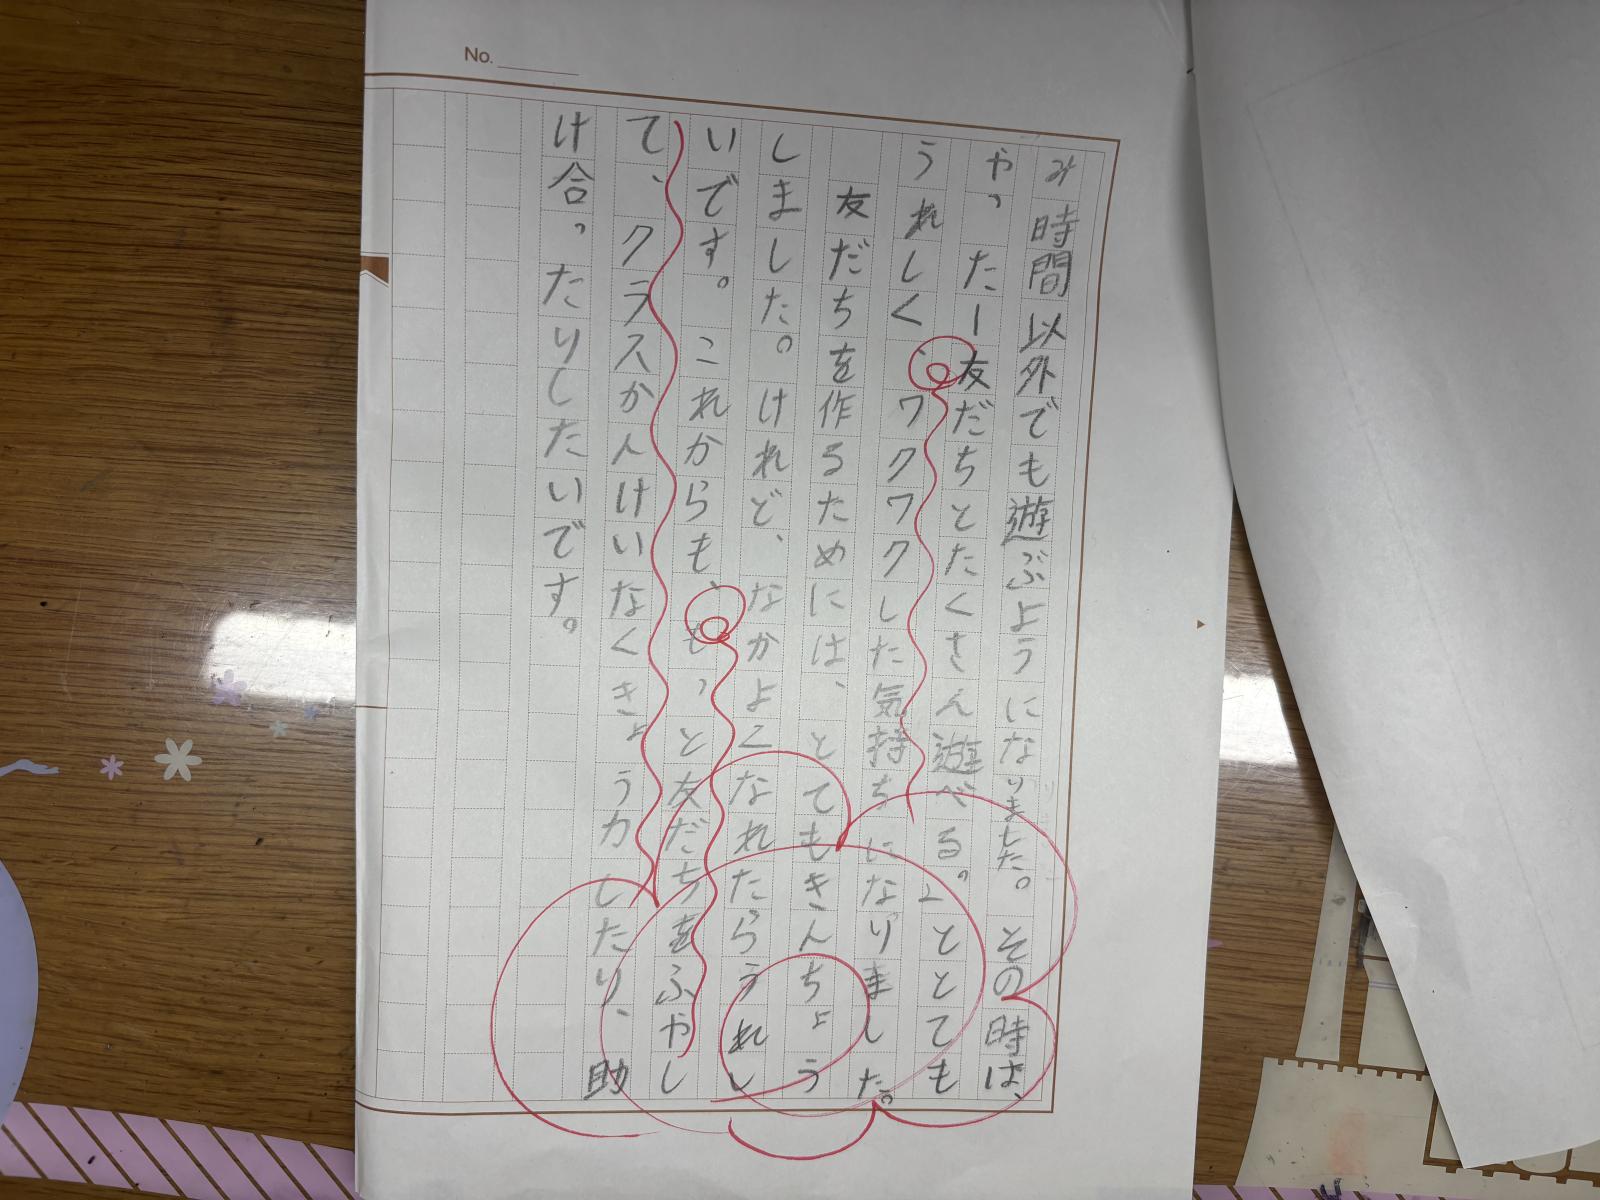 No.
み時間以外でも遊ぶようになりました。その時は、
やったー友だちとたくさん遊べる。」ととても
うれしく、ワクワクした気持ちになりました。
友だちを作るためには、とてもきんちょう
しました。けれど、なかよくなれたらうれし
いです。これからも、もっと友だちをふやし
て、クラスかんけいなくきょうカしたり、助
け合ったりしたいです。